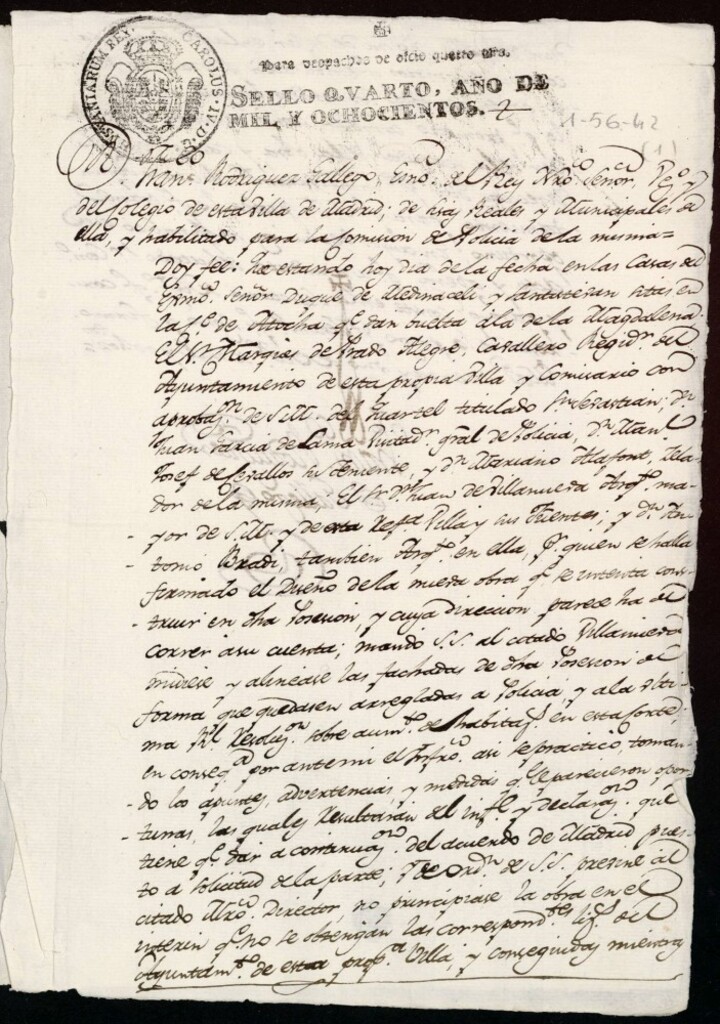 HISPANIARUM REX. CAROLUS. IV. D. G.
Para despachos de oficio quatro mrs.
SELLO QVARTO, AÑO DE
MIL Y OCHOCIENTOS.
1-56-42
(1)
Man.l Rodriguez Gallego, Essno. del Rey Nro. Señor,
del Colegio de esta Villa de Madrid; de Reales y Municipales de
ella, y habilitado para la Comision de Policia de la misma=
Doy fee: ha estando hoy dia de la fecha en las Casas del
Exmo. Señor Duque de Medinaceli, y Santisteban sitas en
la C.e de Atocha q.e dan buelta á la de la Magdalena.
El S.r Marques de Prado Alegre, Cavallero Regid.r del
Ayuntamiento de esta propia Villa y Comisario con
aprobaz.on de S.M. del Quartel titulado S.n Sebastian; D.n
Juan Garcia de Lama Visitad.r gral de Policia, D.n Man.l
Josef de Cevallos su Teniente, y D.n Mariano Alafont, Zela-
dor de la misma; El S.r D.n Juan de Villanueva Arq.to ma-
yor de S.M. y de esta Villa y sus Fuentes; y D.n An-
tonio Bradi, tambien Arq.to en ella, p.r quien se halla
formado el Diseño de la nueva obra q.e se intenta cons-
truir en dha Posesion, y cuya direcion parece ha de
correr a su cuenta; mandó S.S. al citado Villanueva
midiese y alinease las fachadas de dha Posesion de
forma que quedasen arregladas a Policia, y a la ulti-
ma R.l Resoluz.on sobre aum.to de habitaz.s en esta Corte;
en conseq.a por ante mi el Infro. asi se practicó, toman-
do los apuntes, advertencias, y medidas q.e le parecieron opor-
tunas, las quales resultarán del inf.e y declaraz.on que
tiene q.e dar a continuaz.on del acuerdo de Madrid pues-
to a solicitud de la parte; y de ord.n de S.S. previne al
citado Mro. Director, no principiase la obra en el
interin q.e no se obtengan las correspond.tes liz.s del
Ayuntam.to de esta prop.a Villa, y conseguidas